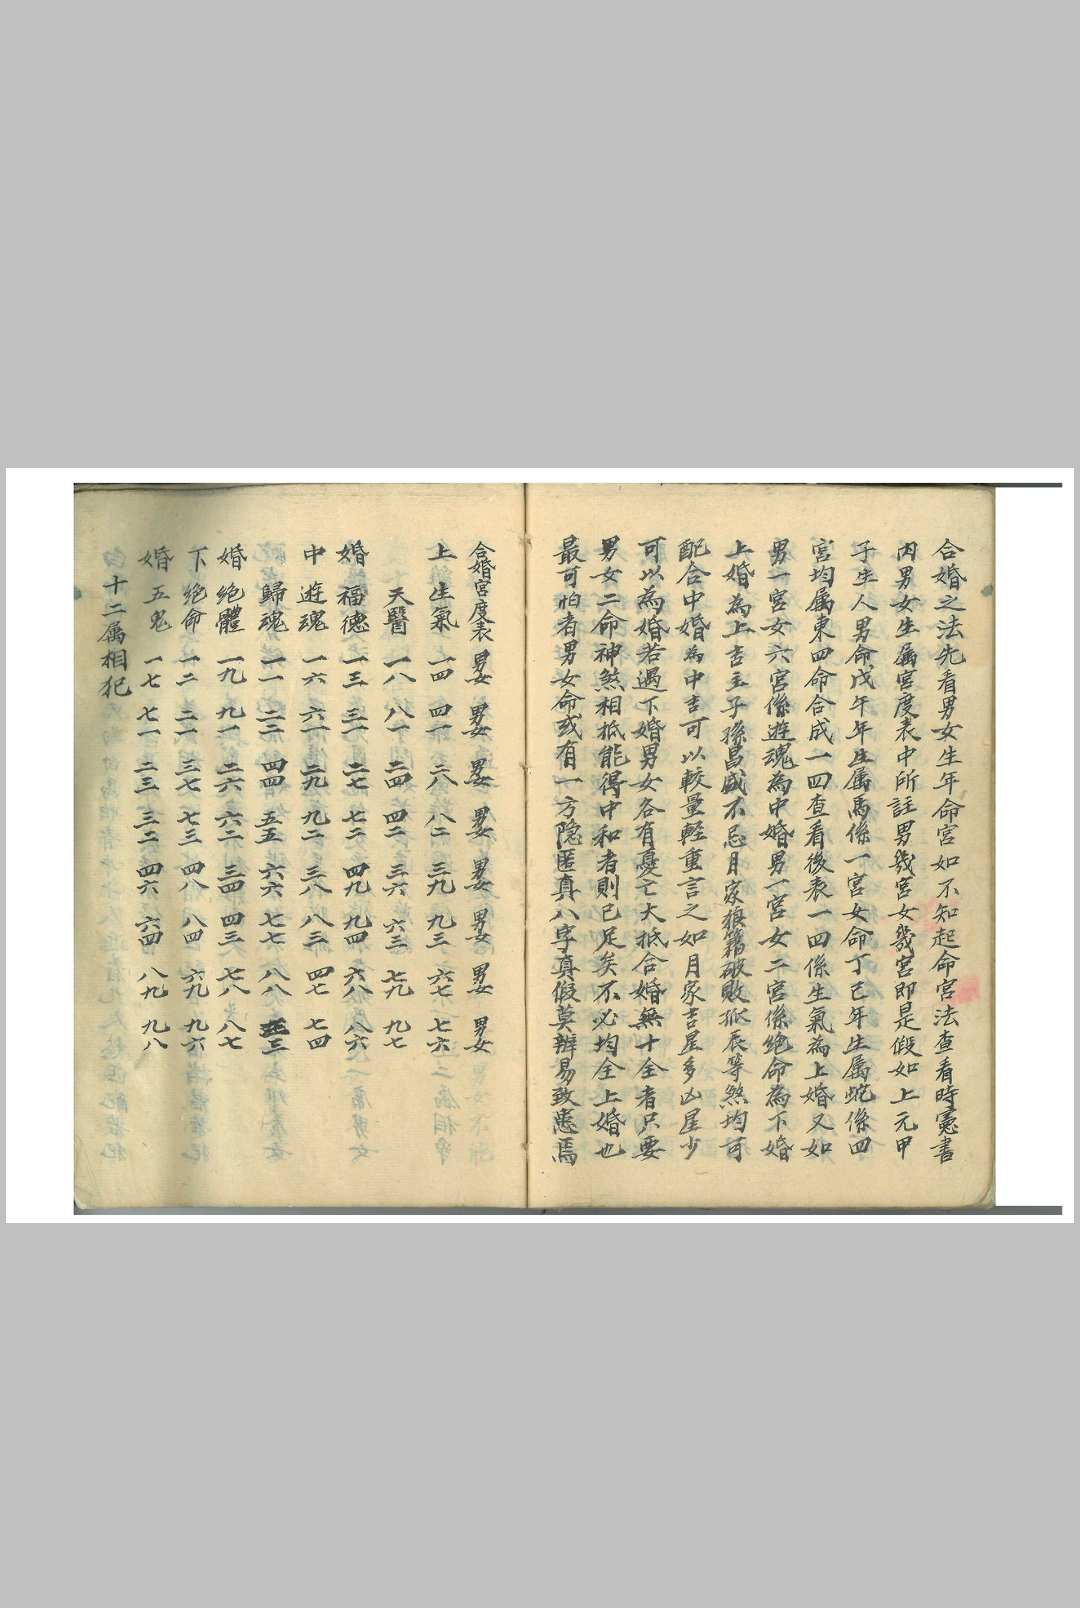 合婚之法先看男女生年命宮如不知起命宮法查看時憲書
內男女生屬宮度表中所註男幾宮女幾宮即是假如上元甲
子生人男命戊午年生屬馬係一宮女命丁巳年生屬蛇係四
宮均屬東四命合成一四查看後表一四係生氣為上婚又如
男一宮女六宮係遊魂為中婚男一宮女二宮係絶命為下婚
上婚為上吉主子孫昌盛不忌月家狼籍破敗孤辰等煞均可
配合中婚為中吉可以較量輕重言之如月家吉星多凶星少
可以為婚若遇下婚男女各有憂亡大抵合婚無十全者只要
男女二命神煞相抵能得中和者則已足矣不必均全上婚也
最可怕者男女命或有一方隱匿真八字真假莫辨易致悞焉
合婚宮度表 男女 男女 男女 男女 男女 男女 男女 男女
上 生氣 一四 四一 二八 八二 三九 九三 六七 七六
天醫 一八 八一 二四 四二 三六 六三 七九 九七
婚 福德 一三 三一 二七 七二 四九 九四 六八 八六
中 遊魂 一六 六一 二九 九二 三八 八三 四七 七四
歸魂 一一 二二 四四 五五 六六 七七 八八 三三
婚 絶體 一九 九一 二六 六二 三四 四三 七八 八七
下 絶命 一二 二一 三七 七三 四八 八四 六九 九六
婚 五鬼 一七 七一 二三 三二 四六 六四 八九 九八
十二属相犯